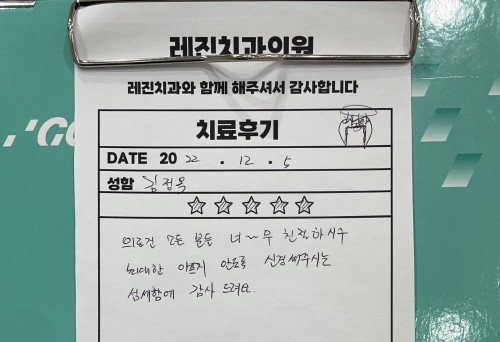 레진치과의원
레진치과와 함께 해주셔서 감사합니다
치료후기
DATE 20 22 . 12 . 5
성함 김정옥
의료진 모든 분들 너~무 친절하시구
최대한 아프지 않도록 신경써주시는
섬세함에 감사드려요.
GC